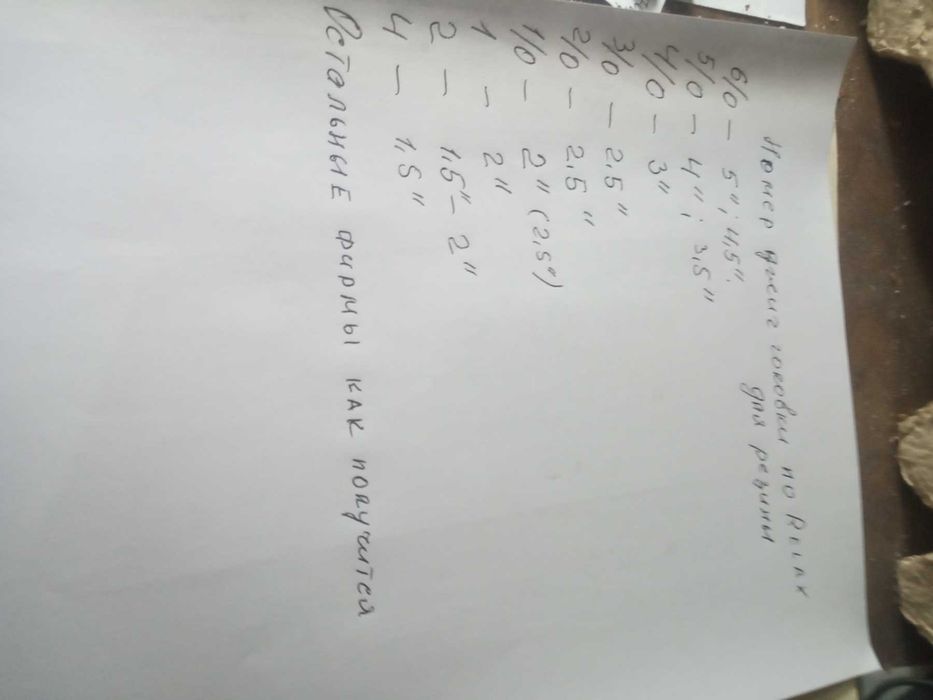 Номер джиг головки по Reins
для резины
6/0 — 5"; 4,5".
5/0 — 4"; 3,5"
4/0 — 3"
3/0 — 2,5"
2/0 — 2,5"
1/0 — 2" (2,5")
1 — 2"
2 — 1,5" - 2"
4 — 1,5"
Остальные фирмы как получится